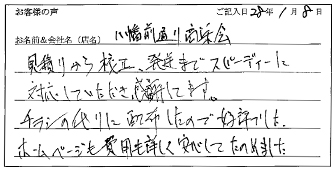 お客様の声 ご記入日 28年 1月 8日
お名前&会社名(店名) 八幡前通り商栄会
見積りから校正、発送までスピーディーに
対応していただき感謝してます。
チラシの代りに配布したので好評でした。
ホームページも費用も詳しく安心してたのめました。